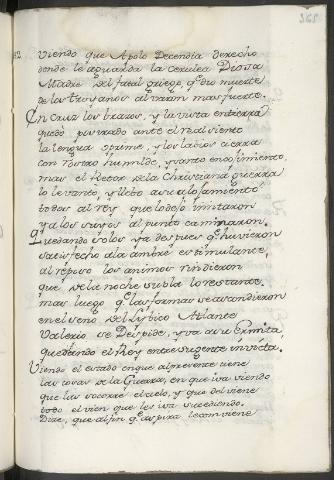 365
Viendo que Apolo Decendia derecho
donde le aguarda la cerulea Diosa
Madre del fatal griego, q.e dio muerte
de los troyanos al varon mas fuerte.
En cruz los braços, y la vista en tierra
quedo postrado ante el real
la lengua oprime, y los labios cierra
con rostro humilde, y santo encogimiento,
mas el Hector de la Christiana guerra
lo levanto, y llebo a su alojamiento
todos al rey que lo dejo imitaron
y a los suyos al punto caminaron.
Quedando solos ya despues q.e huvieron
satisfecho a la ambre estimulante,
al reposo los animos rindieron
que de la noche subtalo restante.
mas luego q.e las formas se abandieron
en el seno del Lybico Atlante
Valerio se Despide, y va a su Ermita
quedando el Rey entre su gente invicta.
Viendo el estado en que al presente tiene
las cosas de la Guerra, en que iva viendo
que las socorre el cielo, y que del viene
todo el vien que les iva sucediendo.
Dize, que al fin q.e aspira le conviene